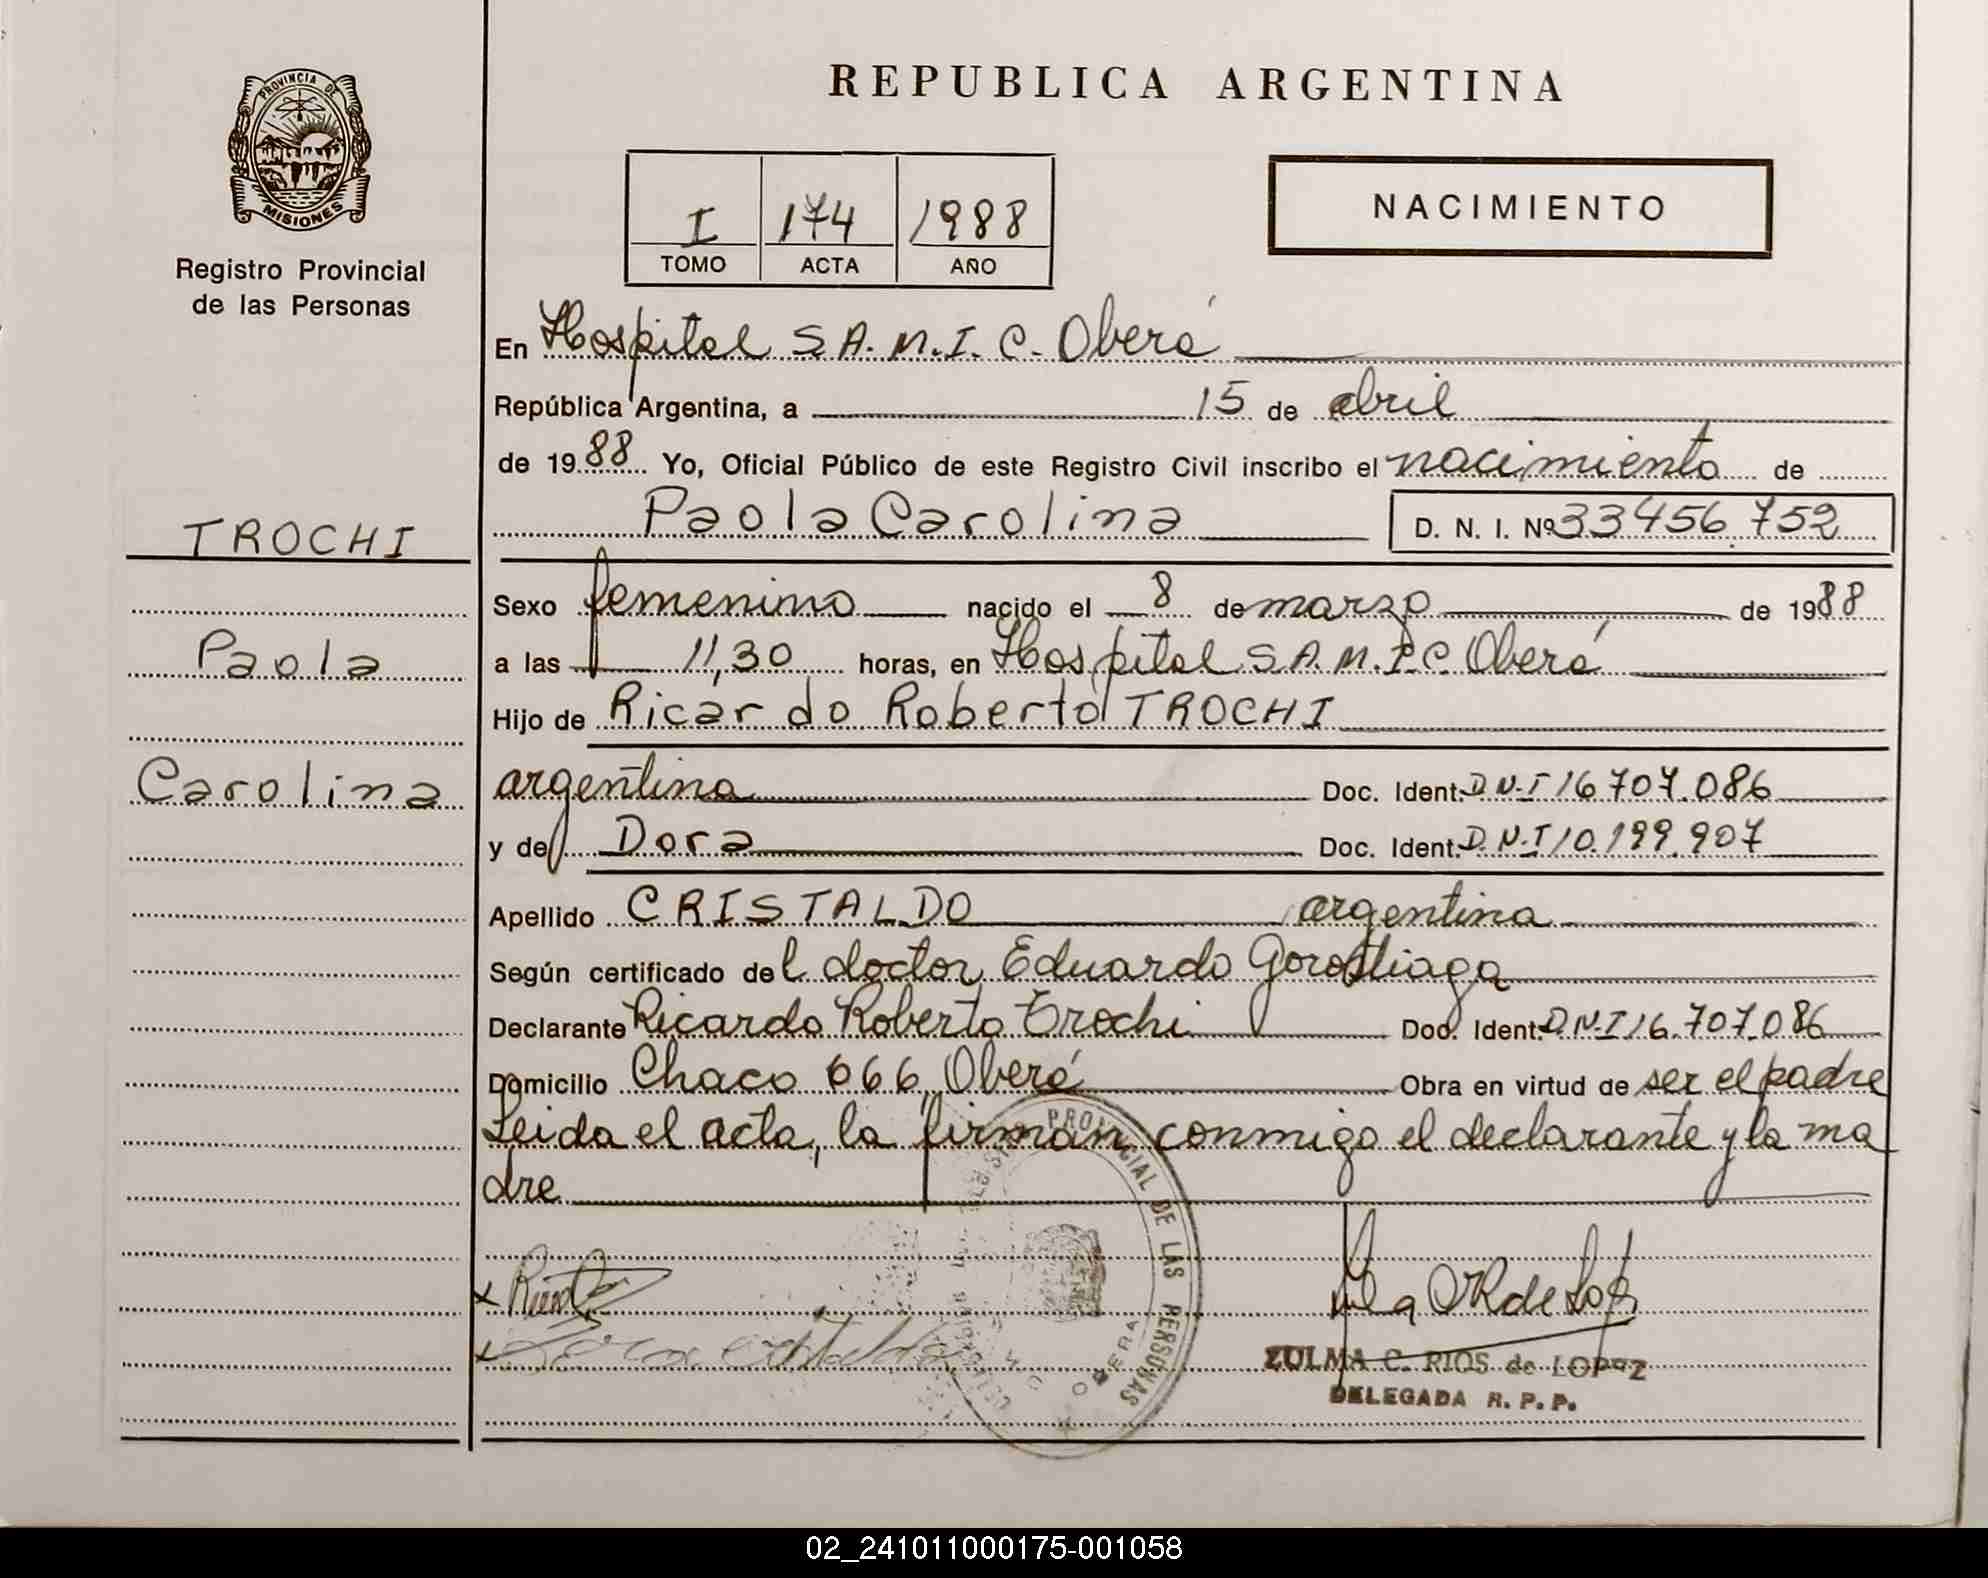 REPUBLICA ARGENTINA
PROVINCIA DE
MISIONES
Registro Provincial
de las Personas
I 174 1988
TOMO ACTA AÑO
NACIMIENTO
En Hospital S.A.M.I.C. Oberá
República Argentina, a 15 de abril
de 1988 Yo, Oficial Público de este Registro Civil inscribo el nacimiento de
Paola Carolina D. N. I. Nº 33456.752
TROCHI
Paola
Carolina
Sexo femenino nacido el 8 de marzo de 1988
a las 11,30 horas, en Hospital S.A.M.I.C Oberá
Hijo de Ricardo Roberto TROCHI
argentina Doc. Ident. D.N.I 16.707.086
y de Dora Doc. Ident. D.N.I 10.199.907
Apellido CRISTALDO argentina
Según certificado del doctor Eduardo Gorostiaga
Declarante Ricardo Roberto Trochi Doc. Ident. D.N.I 16.707.086
Domicilio Chaco 666 Oberá Obra en virtud de ser el padre
Leida el acta, la firman conmigo el declarante y la ma
dre
PROVINCIAL DE LAS PERSONAS
OBERA
ZULMA C. RIOS de LOPEZ
DELEGADA R. P. P.
02_241011000175-001058